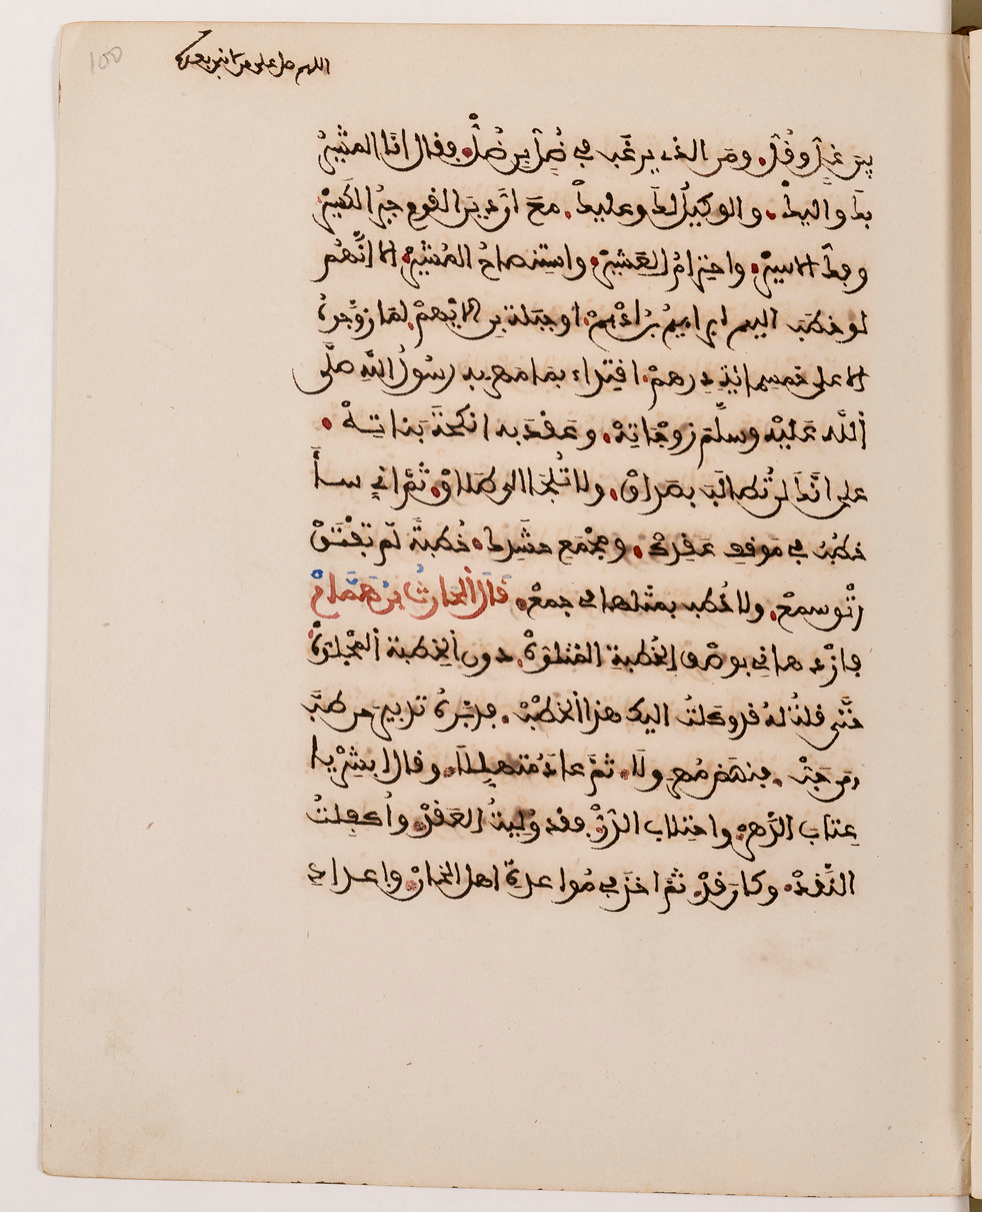 اللهم صل على من لا نبي بعده
بين غل وقل ومن الذي يرغب في ضل بن ضل فقال انا المشير
بك واليك والوكيل لك وعليك مع ان دين القوم جبر الكسير
وفك الاسير واحترام العشير واستنصاح المشير الا انهم
لو خطب اليهم ابراهيم بن ادهم او جبلة بن الايهم لما زوجوه
الا على خمسمائة درهم اقتداء بما مهر به رسول الله صلى
الله عليه وسلم زوجاته وعقد به انكحة بناته
على انك لن تطالب بصداق ولا تلجا الى طلاق ثم اني سا
خطب في موقف عقدك ومجمع حشدك خطبة لم تفتق
رتق سمع ولا خطب بمثلها في جمع قال الحارث بن همام
فازدهاني بوصف الخطبة المتلوة دون الخطبة المجلوة
حتى قلت له قد وكلت اليك هذا الخطب فدبره تدبير من طب
لمن حب فنهض مهرولا ثم عاد متهللا وقال ابشر با
عتاب الدهر واحتلاب الدر فقد وليت العقد وأكفلت
النقد وكان قد ثم اخذ في مواعدة اهل الخان واعداد